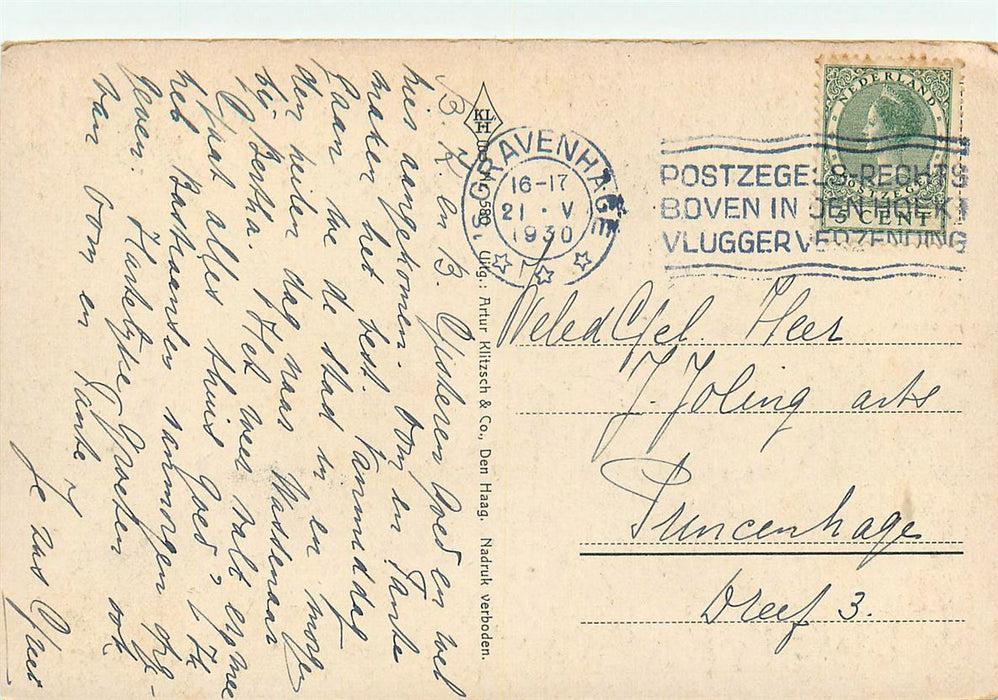 B. K. en B. Gisteren goed en wel
hier aangekomen. Oom en Tante
maken het best. Vanmiddag
gaan we de stad in en morgen
den heelen dag naar Wassenaar
bij Bertha. Het weer valt erg mee
Gaat alles thuis goed? Ik
heb Baskaarsen vanmorgen afge-
geven. Hartelijke groeten ook
van Oom en Tante
Je zus
KL
H
580
Uitg.: Artur Klitzsch & Co., Den Haag. Nadruk verboden.
'S-GRAVENHAGE
16-17
21 · V
1930
1
POSTZEGELS RECHTS
BOVEN IN DEN HOEK
VLUGGER VERZENDING
NEDERLAND
POSTZEGEL
5 CENT
WelEd Gel. Heer
J. Joling arts
Princenhage
Dreef 3.